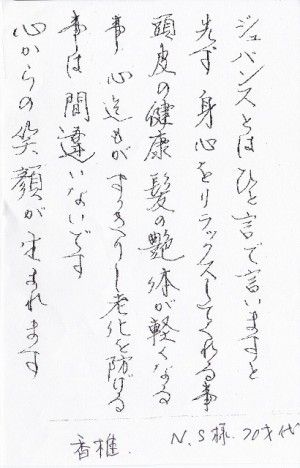 ジュバンスとはひと言で言いますと
先ず身心をリラックスしてくれる事
頭皮の健康髪の艶体が軽くなる
事心迄もがすっきりし老化を防げる
事は間違いないです
心からの笑顔が生まれます
香椎.
N.S様.70才代